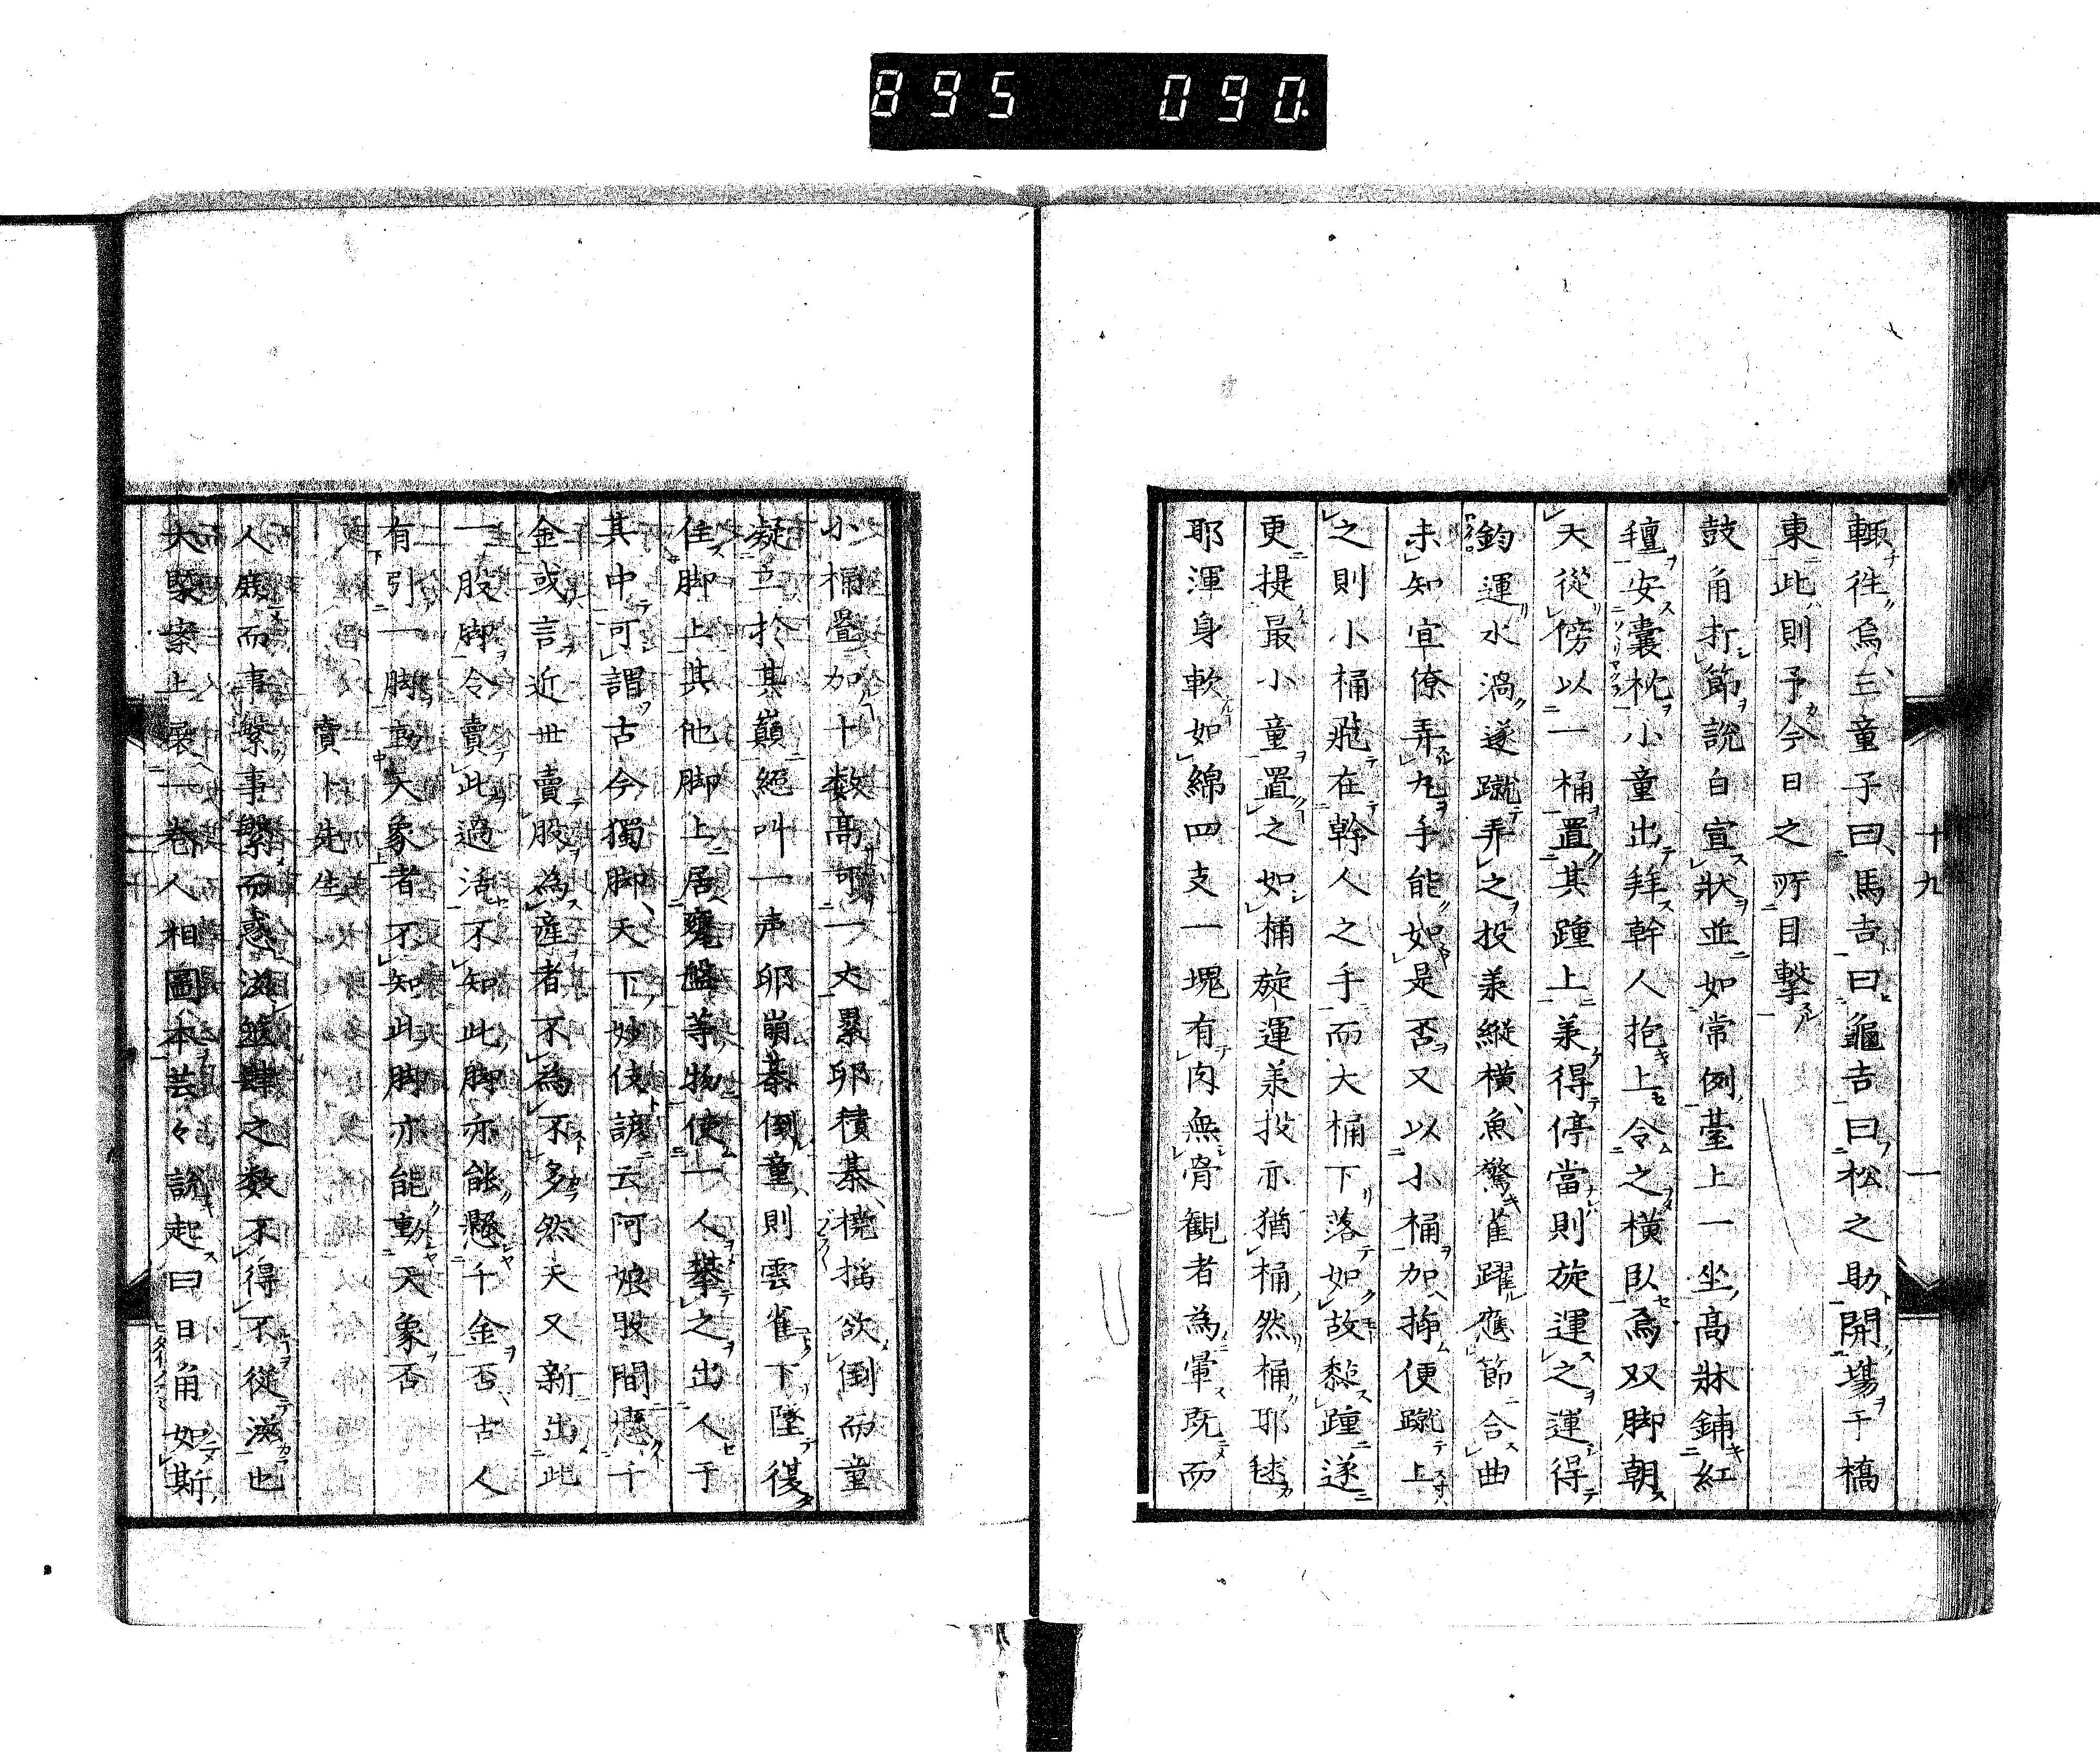 895 090.
十九 一
輙往焉三童子曰馬吉曰龜吉曰松之助開場于橋
東此則予今日之所目擊
鼓角打節說白宣狀並如常例臺上一坐高牀鋪紅
氊安囊枕小童出拜幹人抱上令之橫臥焉双脚朝
天從傍以一桶置其踵上羕得停當則旋運之運得
鈞運水渦遂蹴弄之投羕縱橫魚驚雀躍應節合曲
未知宜僚弄丸手能如是否又以小桶加揷便蹴上
之則小桶飛在幹人之手而大桶下落如故黏踵遂
更提最小童置之如桶旋運羕投亦猶桶然桶耶毬
耶渾身軟如綿四支一塊有肉無骨観者為暈既而
小桶疊加十数高可一丈累卵積棊橈搖欲倒而童
凝立於其巔絕叫一声卵崩棊倒童則雲雀下墜復
佳脚上其他脚上居甕盤等物使一人攀之出人于
其中可謂古今獨脚天下妙伎諺云阿娘股間懸千
金或言近世賣股為産者不為不多然天又新出此
一股脚令賣此過活不知此脚亦能懸千金否古人
有引一脚動大象者不知此脚亦能動天象否
賣卜先生
人庶而事繁事繁而惑滋筮肆之数不得不從滋也
大槩案上展一卷人相圖本芸々說起曰日角如斯